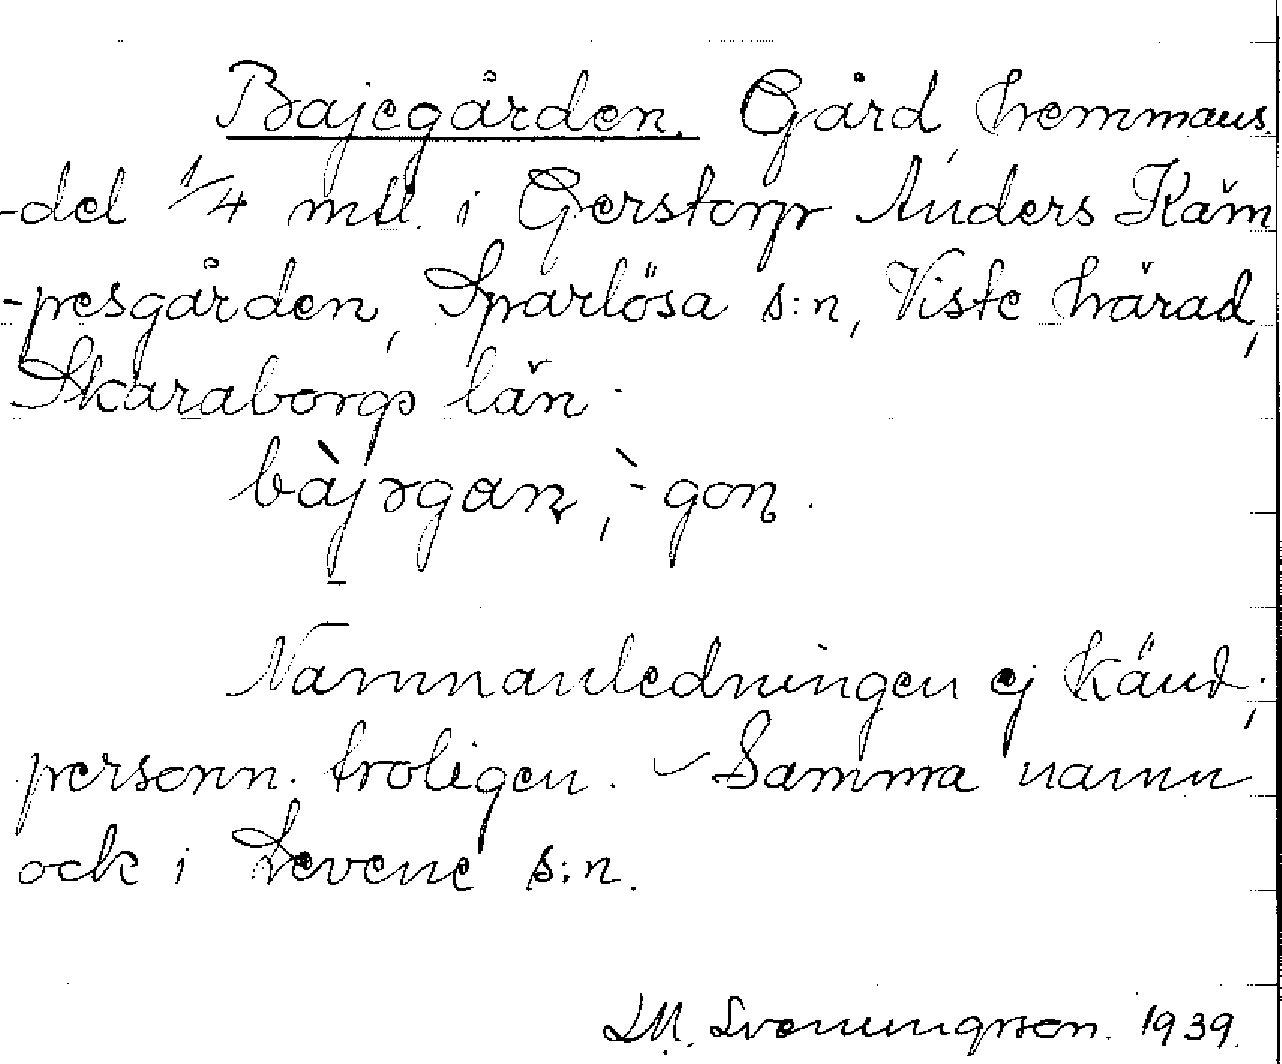 Bajegården. Gård, hemmans
-del 1/4 mtl. i Gerstorp Anders Käm
-pesgården, Sparlösa s:n, Viste härad,
Skaraborgs län.
bàjrgan, -̀gon.
Namnanledningen ej känd;
personn. troligen. Samma namn
ock i Levene s:n.
LM. Svenungsson. 1939.